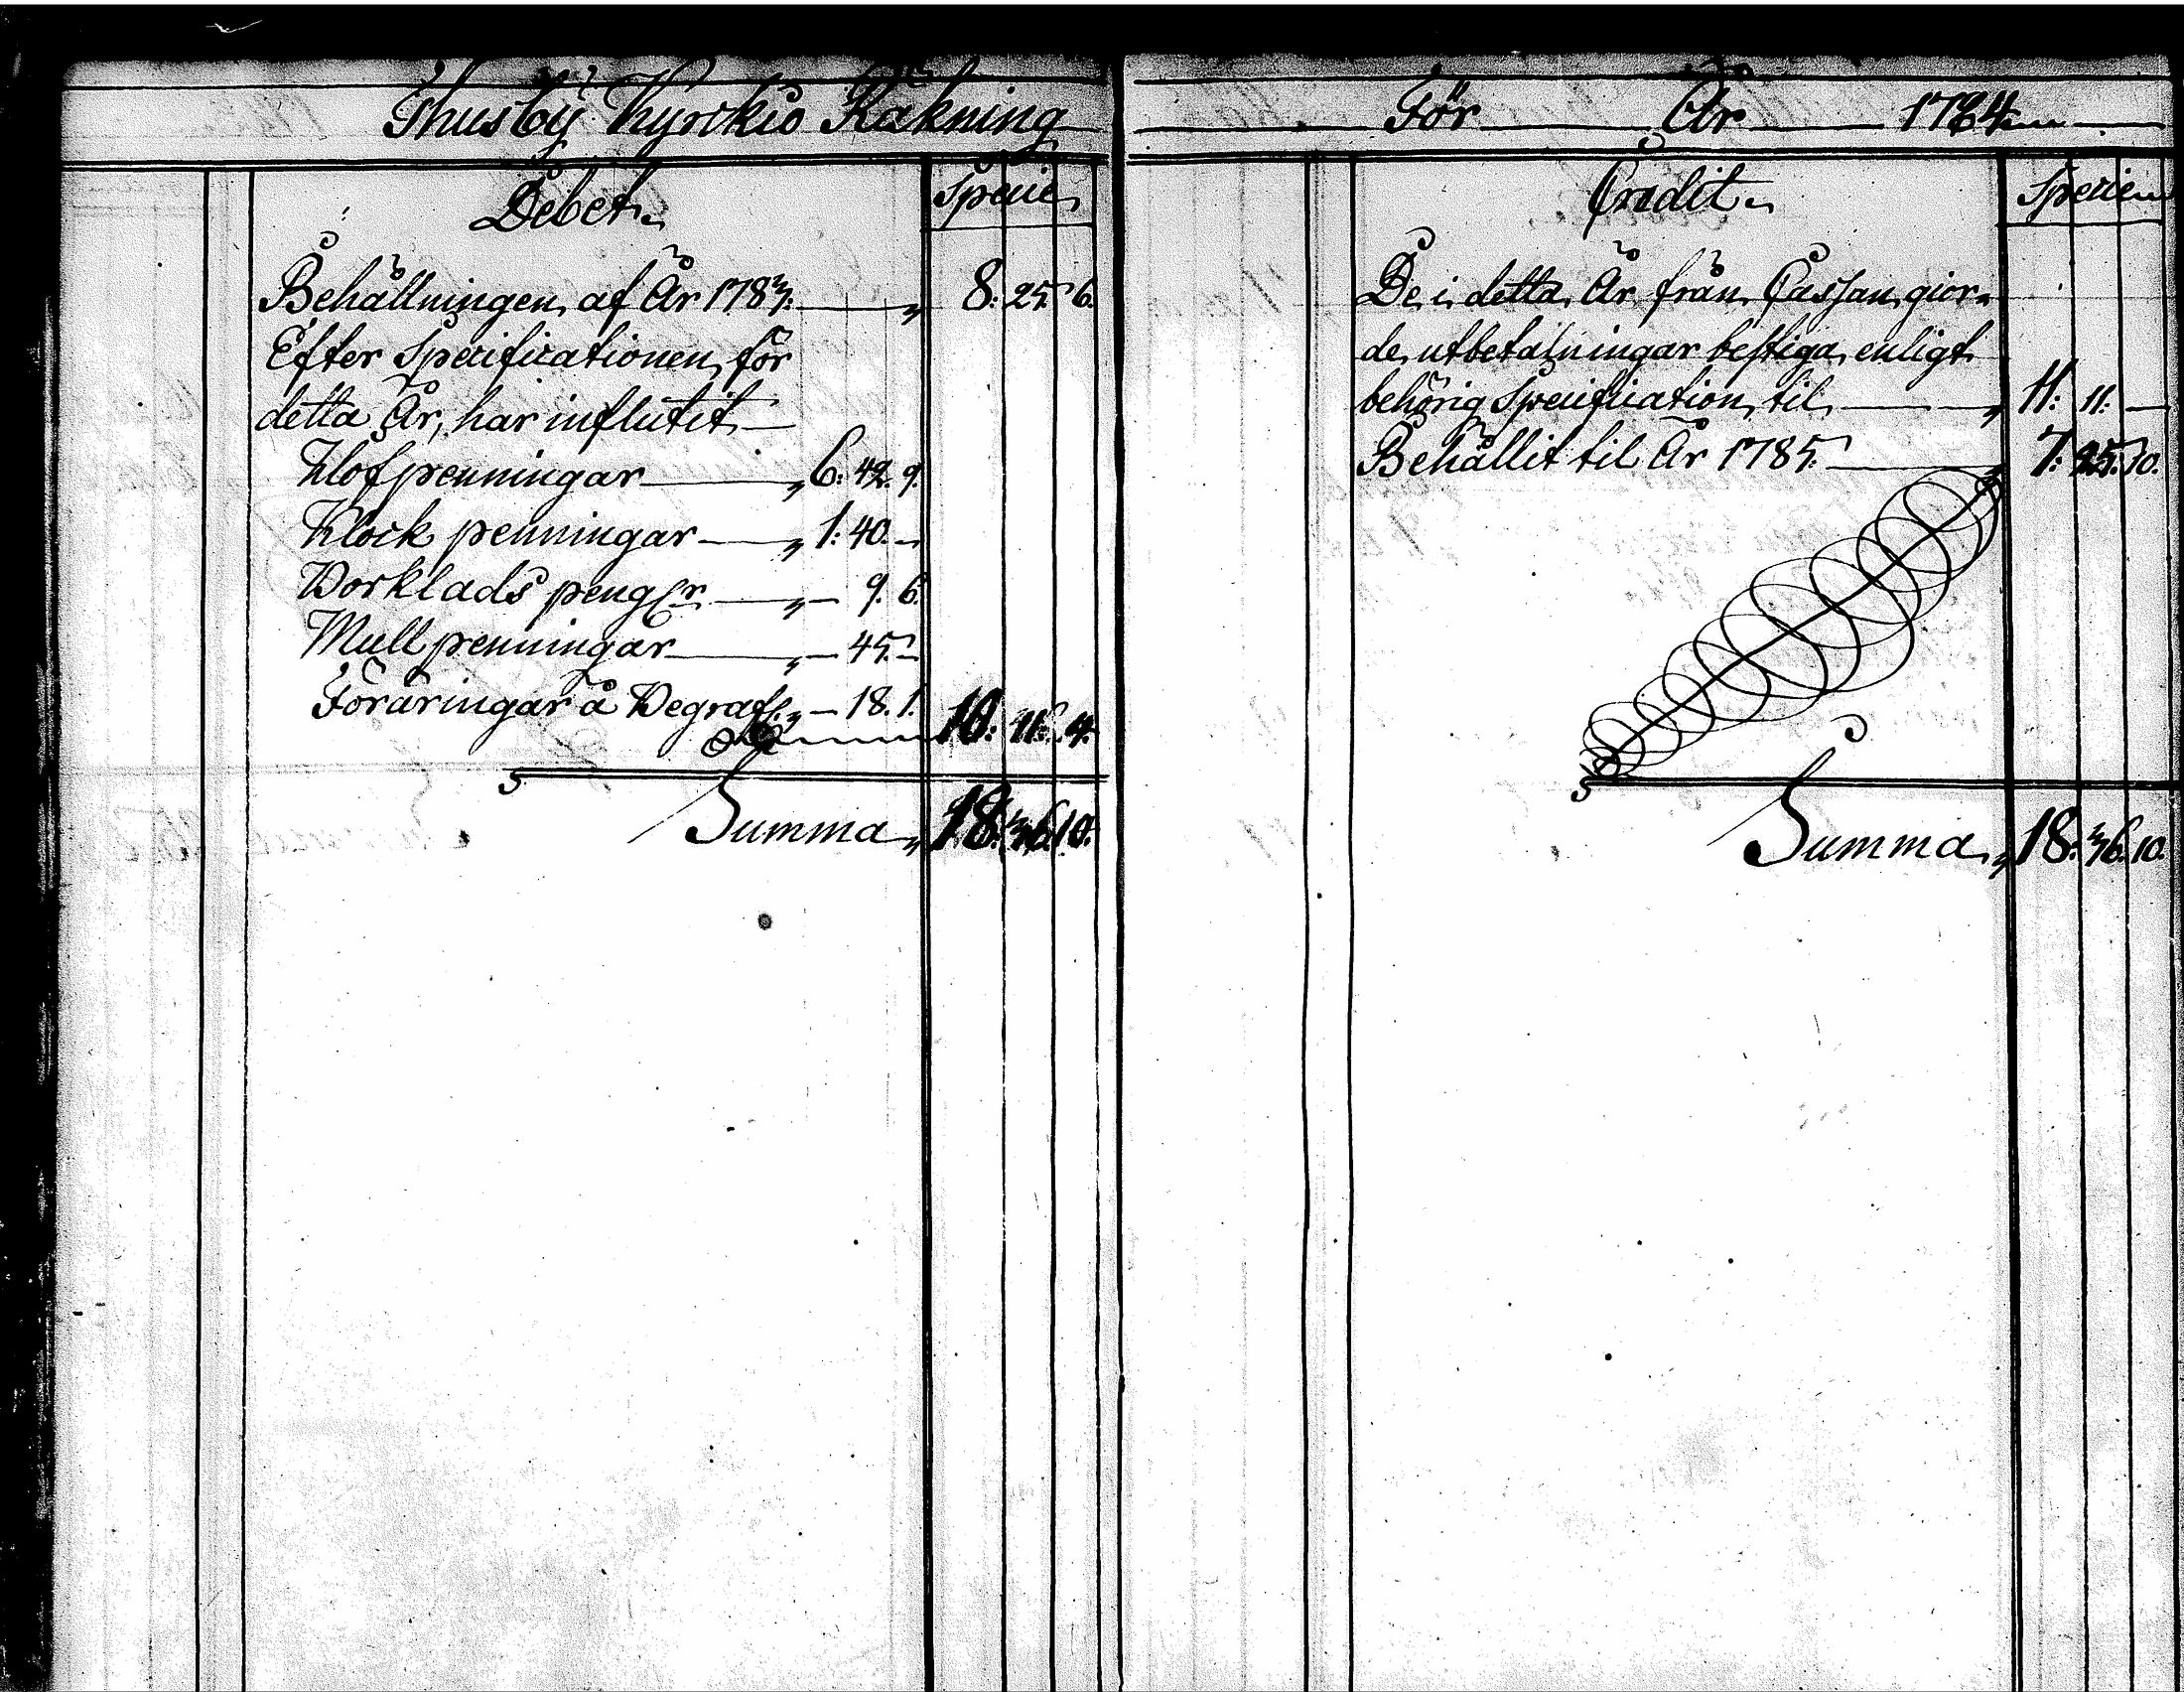 Thusby Kyrckio Räkning
Debet.
Specie
Behållningen af År 1783. 8. 25. 6.
Efter Specificationen för
detta År, har influtit
Hofpenningar 6: 42. 9.
Klock penningar 1: 40. –
Worklads peng:r – 9. 6.
Mull penningar – 45. –
Föräringar å Wegraf. – 18. 1. 10: 11. 4.
Summa 18. 36. 10.
För År 1784
Credit.
Specie
De i detta År från Cassan gior-
de utbetalningar bestiga enligt
behörig Specification til 11: 11. –
Behållit til År 1785. 7. 25. 10.
Summa 18. 36. 10.